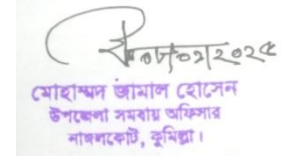 ০৮/০৭/২০২৫
মোহাম্মদ জামাল হোসেন
উপজেলা সমবায় অফিসার
নাঙ্গলকোট, কুমিল্লা।